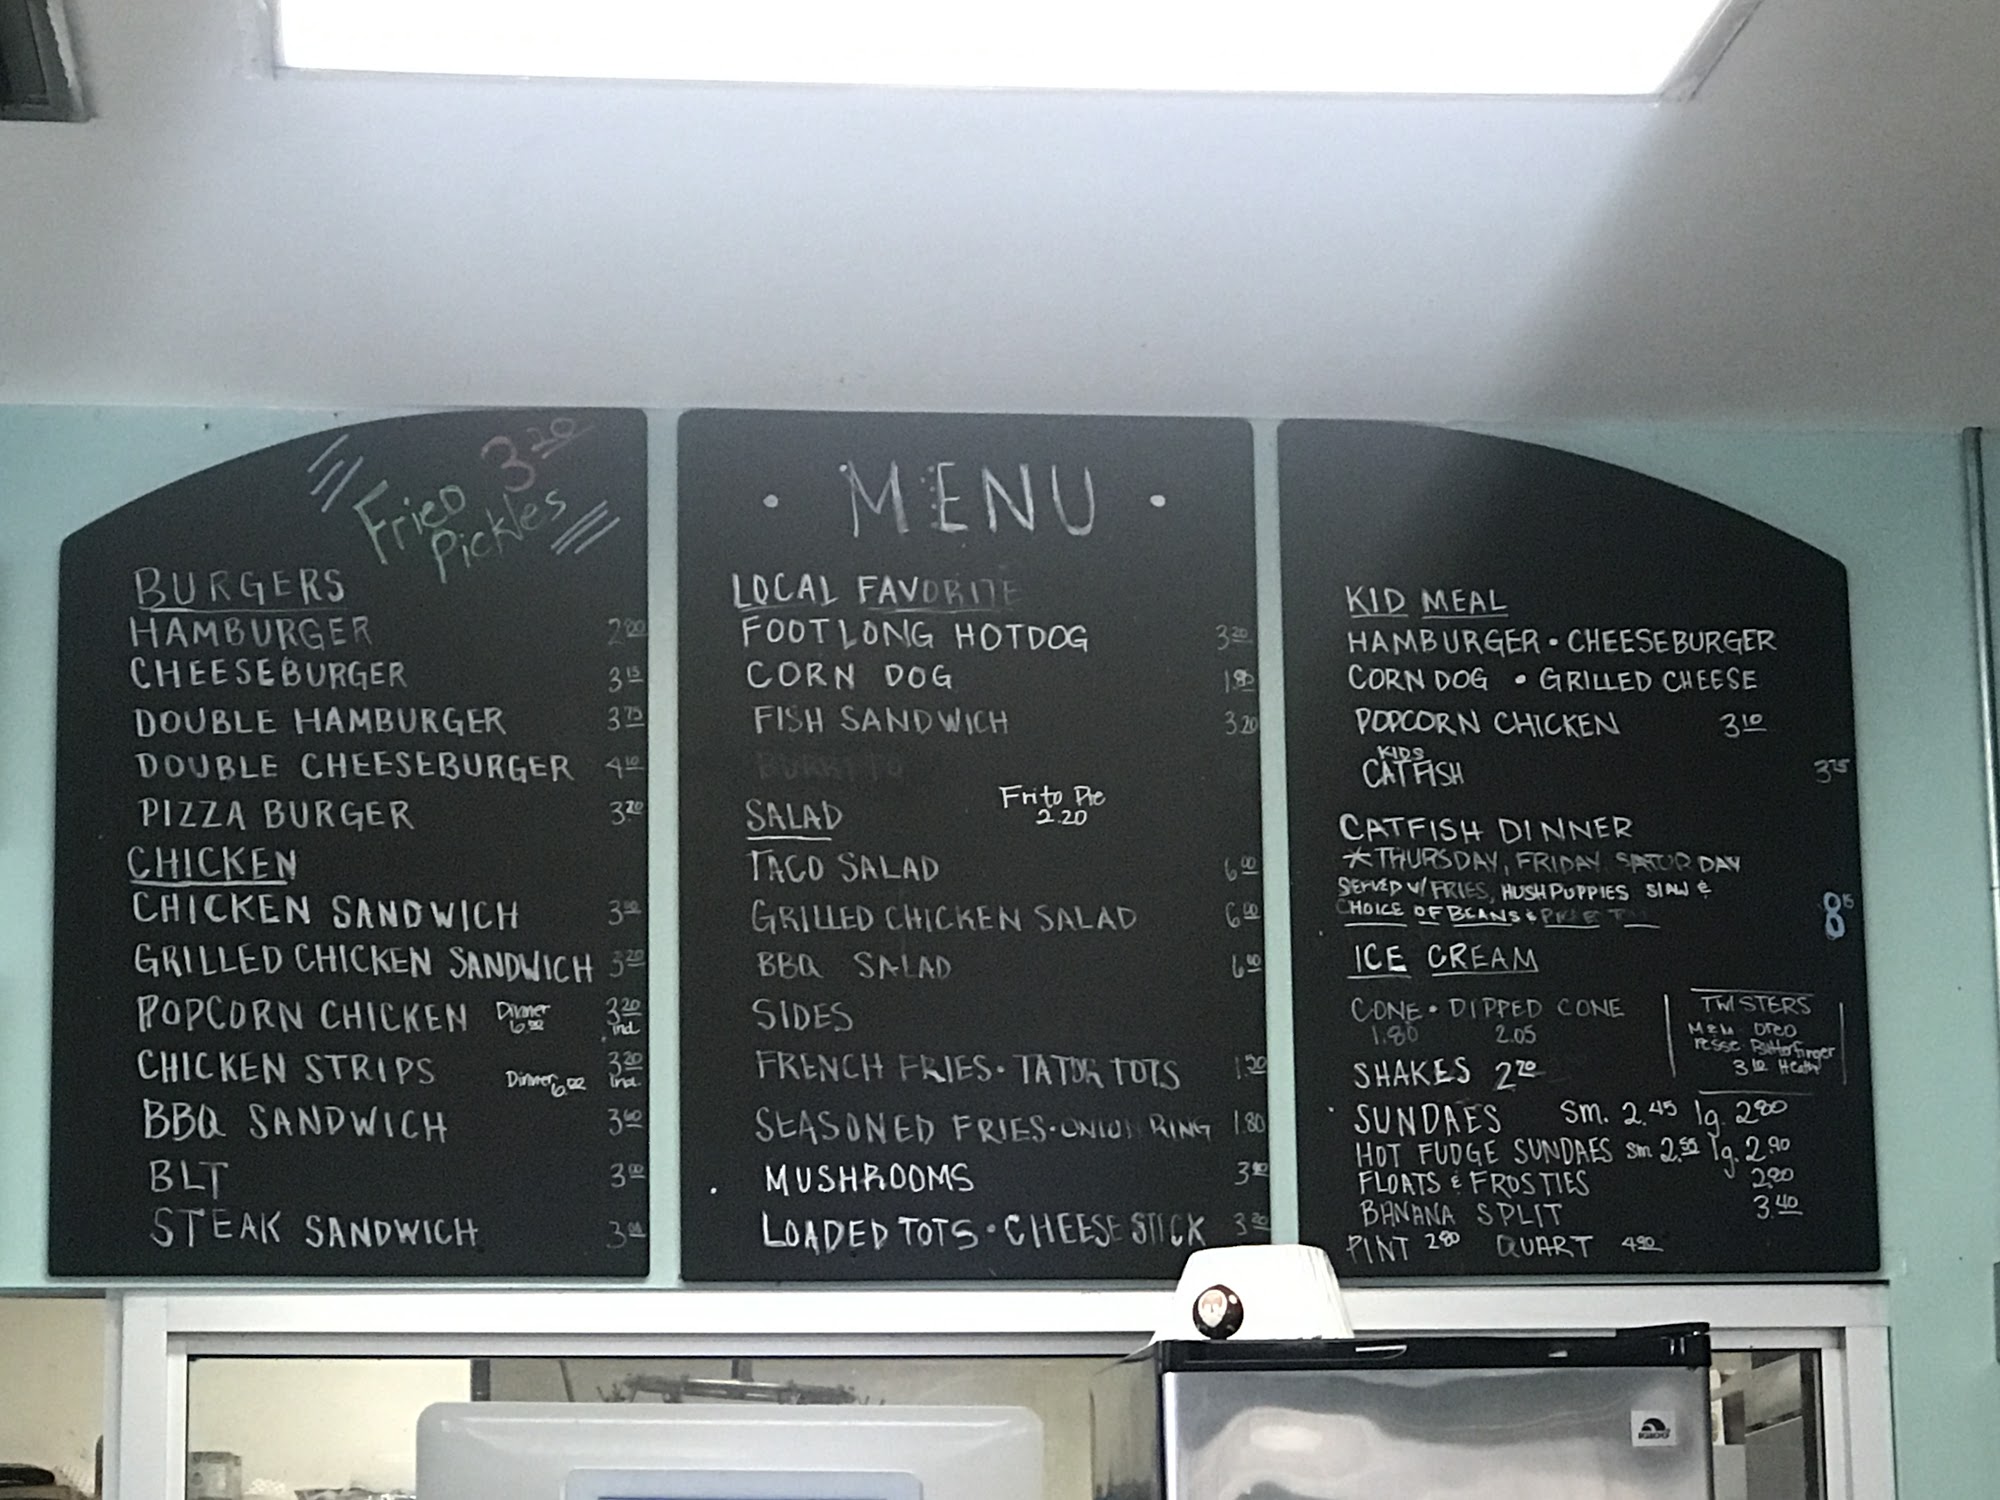 3.20
Fried
Pickles
BURGERS
HAMBURGER 2.80
CHEESEBURGER 3.15
DOUBLE HAMBURGER 3.75
DOUBLE CHEESEBURGER 4.10
PIZZA BURGER 3.20
CHICKEN
CHICKEN SANDWICH
GRILLED CHICKEN SANDWICH 3.20
POPCORN CHICKEN Dinner 6.00 3.20 ind.
CHICKEN STRIPS Dinner 6.00 3.20 ind.
BBQ SANDWICH 3.60
BLT 3.00
STEAK SANDWICH
• MENU •
LOCAL FAVORITE
FOOTLONG HOTDOG 3.20
CORN DOG 1.80
FISH SANDWICH 3.20
BURRITO
Frito Pie
2.20
SALAD
TACO SALAD 6.00
GRILLED CHICKEN SALAD 6.00
BBQ SALAD 6.00
SIDES
FRENCH FRIES • TATOR TOTS 1.50
SEASONED FRIES • ONION RING 1.80
MUSHROOMS
LOADED TOTS • CHEESE STICK 3.20
KID MEAL
HAMBURGER • CHEESEBURGER
CORN DOG • GRILLED CHEESE
POPCORN CHICKEN 3.10
KIDS
CATFISH 3.75
CATFISH DINNER
*THURSDAY, FRIDAY SATURDAY
SERVED W/ FRIES, HUSHPUPPIES SLAW &
CHOICE OF BEANS & 8.15
ICE CREAM
CONE • DIPPED CONE
1.80 2.05
TWISTERS
M&M OREO
Resse Butterfinger
3.10 Heath
SHAKES 2.70
SUNDAES Sm. 2.45 lg. 2.80
HOT FUDGE SUNDAES Sm 2.55 lg. 2.90
FLOATS & FROSTIES 2.80
BANANA SPLIT 3.40
PINT 2.80 QUART 4.90
IGLOO